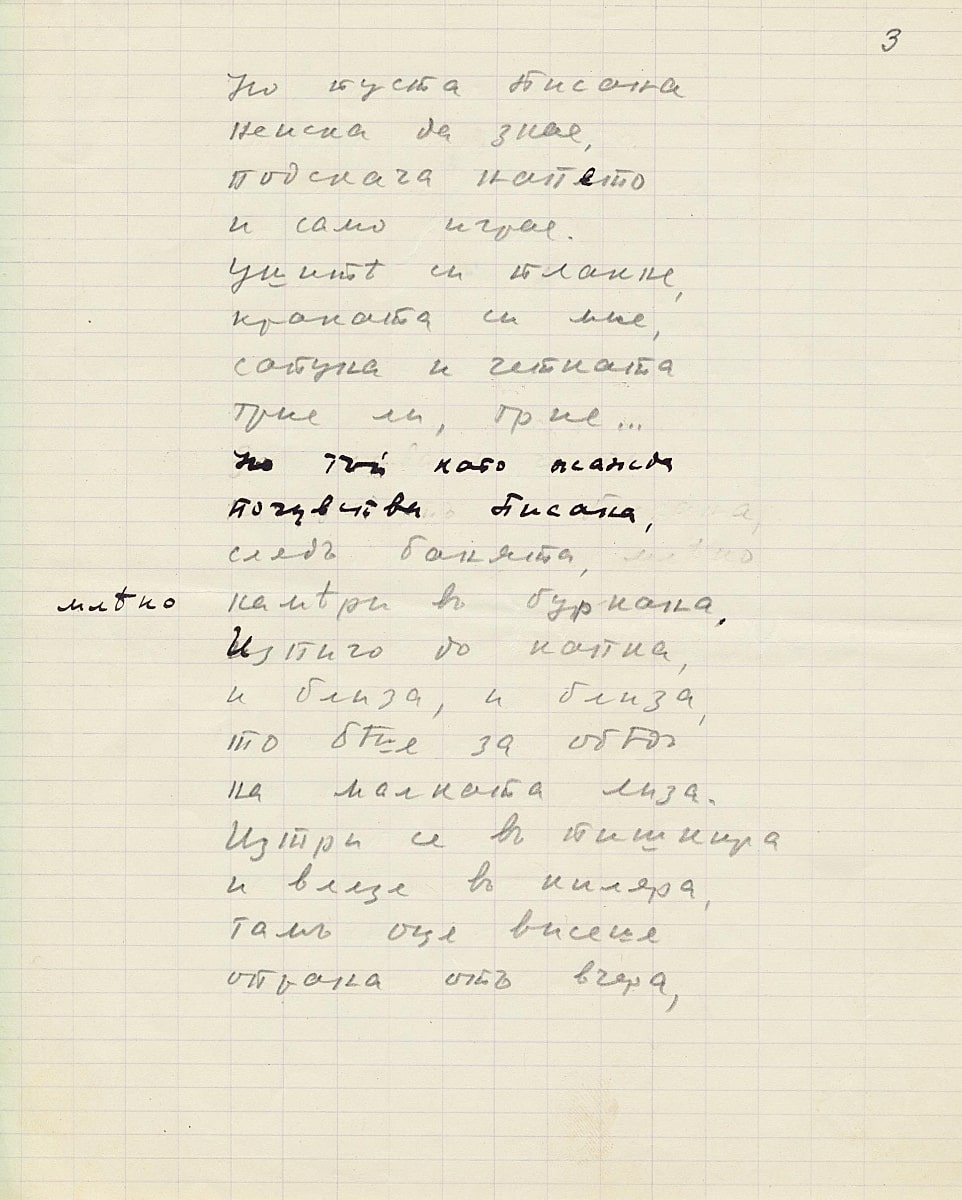 3
Но пуста Писана
неиска да знае,
подскача напето
и само играе.
Ушитѣ си плакне,
краката си мие,
сапуна и четката
трие ли, трие...
Но тъй като жажда
почувства Писана,
следъ банята,
млѣко намѣри въ буркана,
Изпиго до капка,
и близа, и близа,
то бѣше за обѣдъ
на малката Лиза.
Изтри се въ пишкира
и влезе въ килера,
тамъ още висеше
отрака отъ вчера,